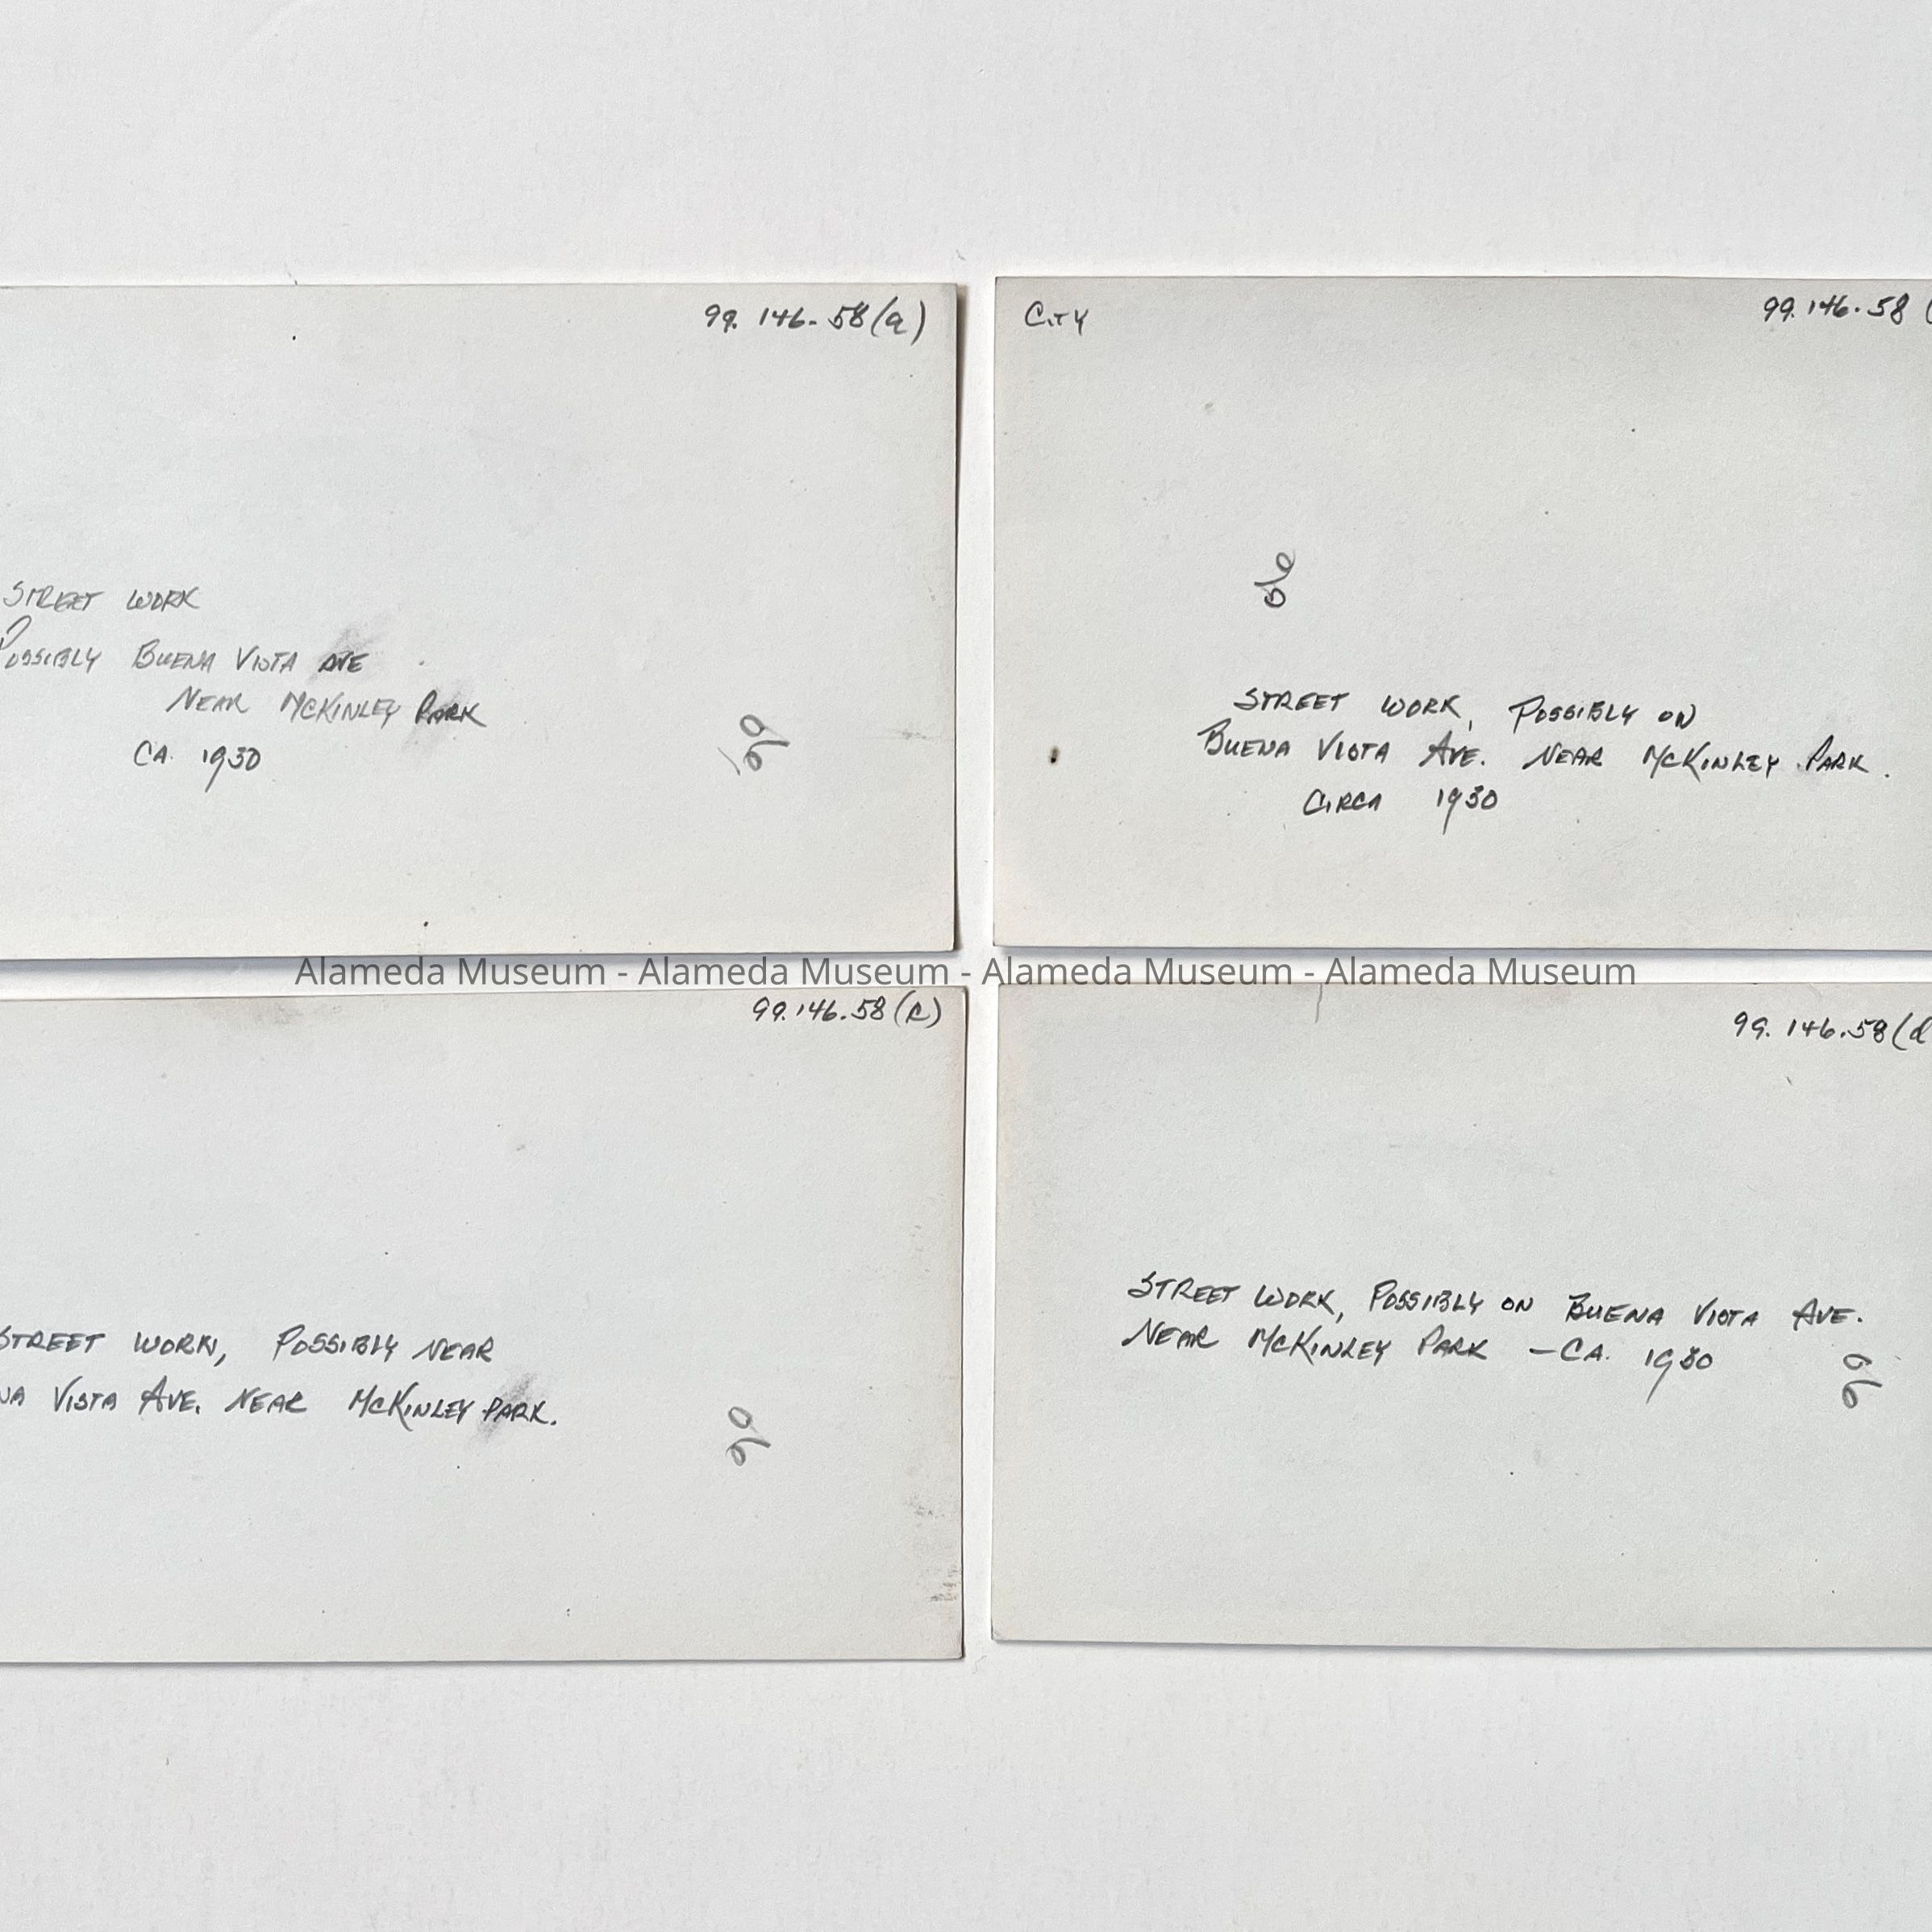 99.146-58(a)
STREET WORK
POSSIBLY BUENA VISTA AVE
NEAR MCKINLEY PARK
CA. 1930
CITY
99.146.58 (
STREET WORK, POSSIBLY ON
BUENA VISTA AVE. NEAR MCKINLEY PARK.
CIRCA 1930
Alameda Museum - Alameda Museum - Alameda Museum - Alameda Museum
99.146.58(c)
STREET WORK, POSSIBLY NEAR
NA VISTA AVE. NEAR MCKINLEY PARK.
99.146.58(d
STREET WORK, POSSIBLY ON BUENA VISTA AVE.
NEAR MCKINLEY PARK – CA. 1930